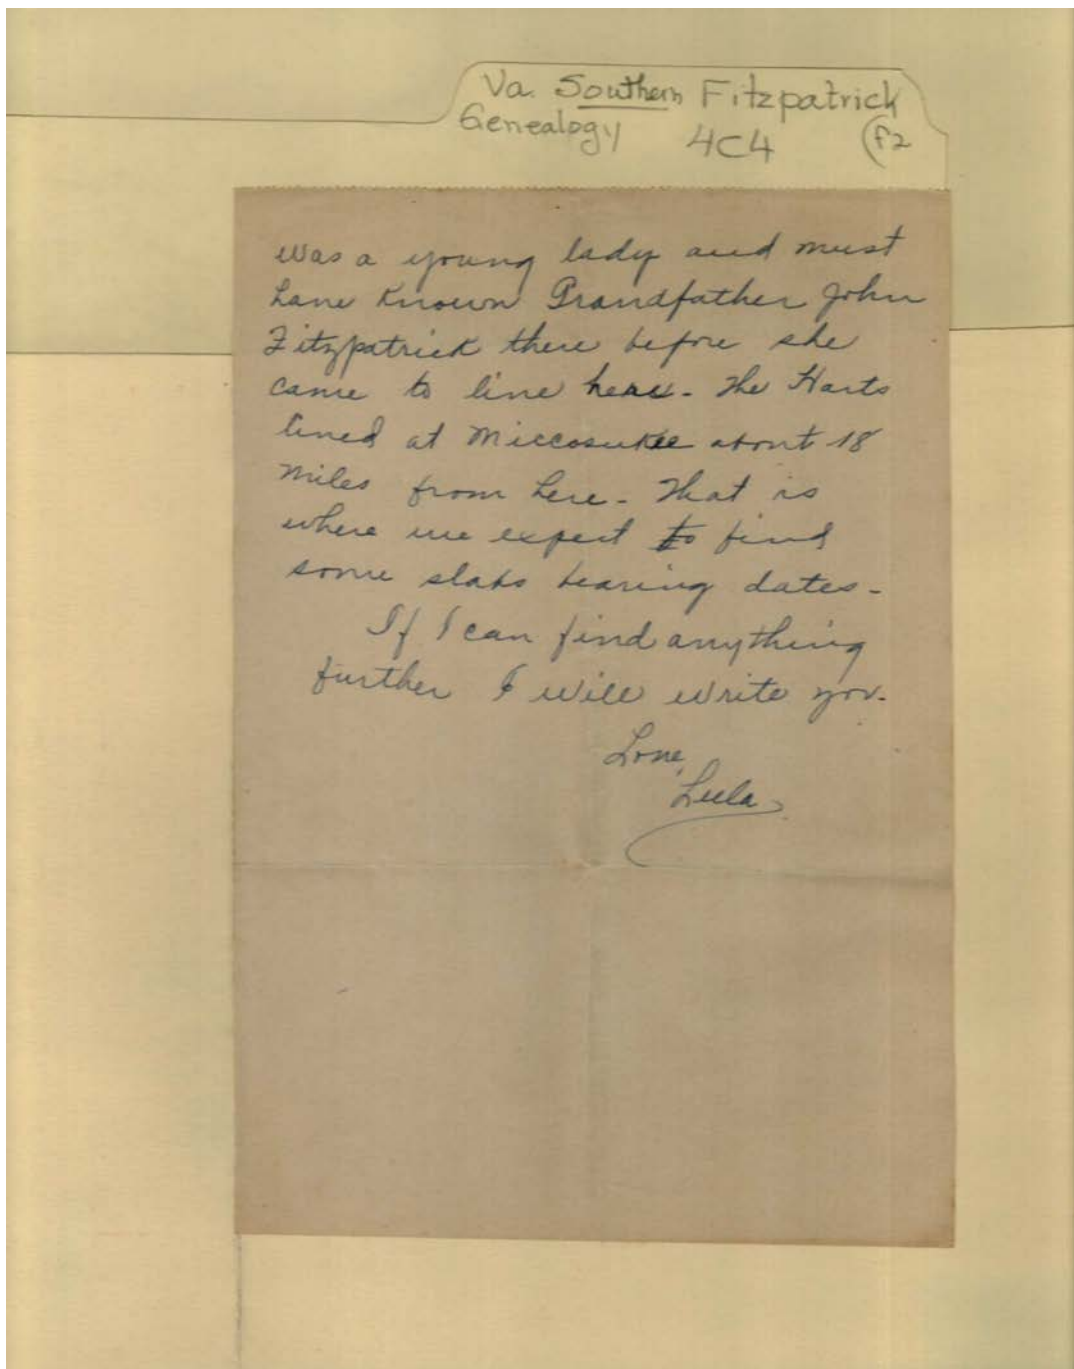 Va. Southern Fitzpatrick
Genealogy 4C4 (F2
was a young lady and must
have known Grandfather John
Fitzpatrick there before she
came to live here. The Harts
lived at Miccosukee about 18
miles from here - That is
where we expect to find
some slabs bearing dates -
If I can find anything
further I will write you.
Love,
Lula